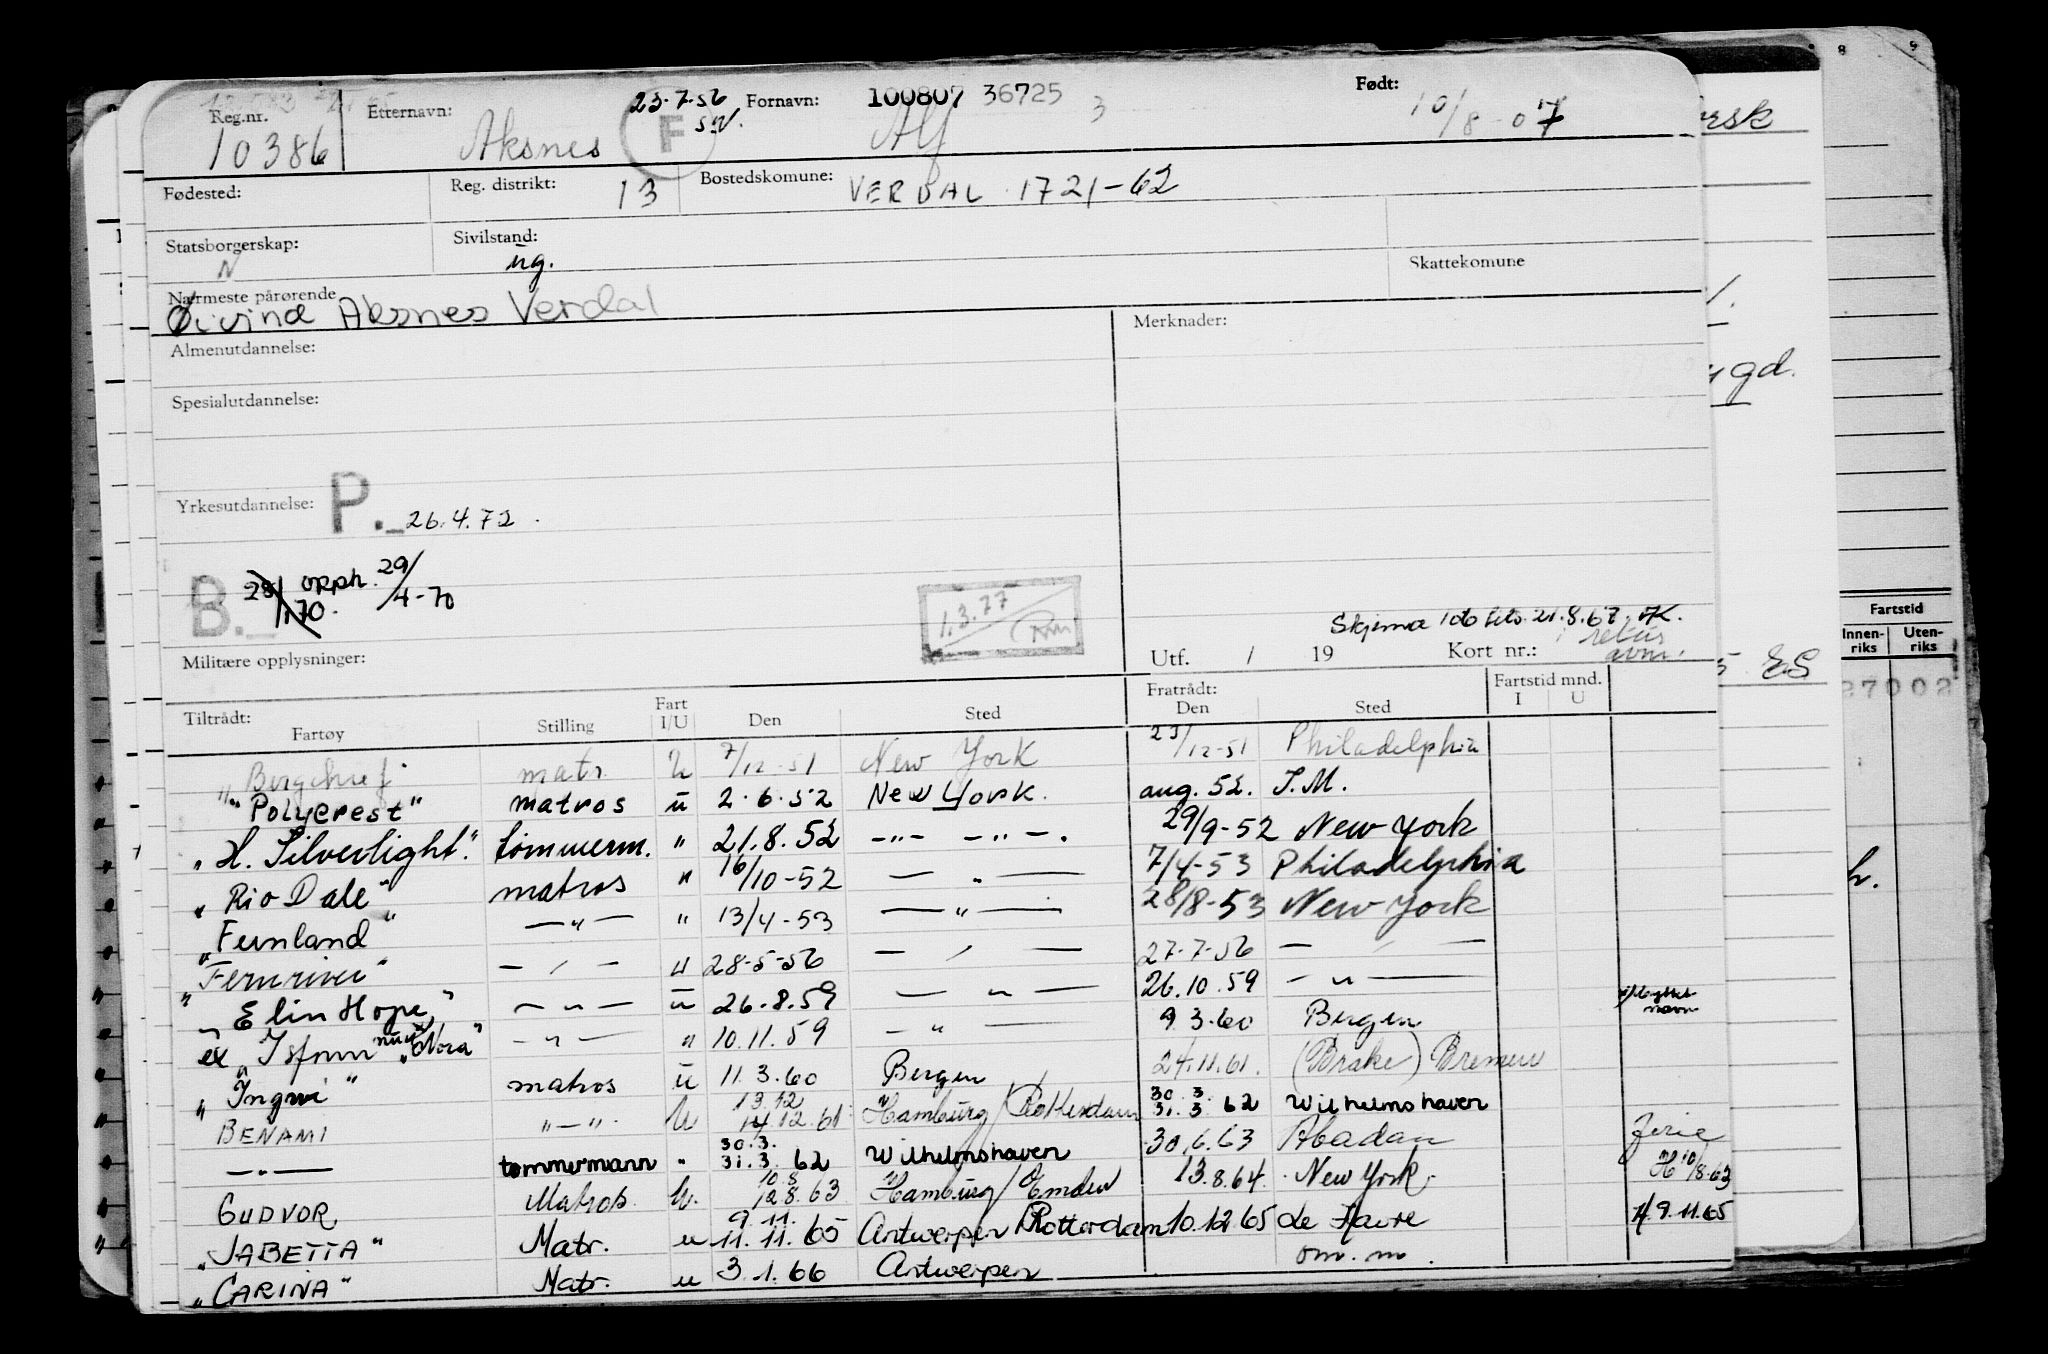 Reg.nr. 10386 Etternavn: Aksnes F 23.7.56 Fornavn: Alf 100807 36725 3 Født: 10/8-07
Fødested: Reg. distrikt: 13 Bostedskomune: VERDAL 1721-62
Statsborgerskap: N Sivilstand: ug. Skattekomune
Nærmeste pårørende Øivind Aksnes Verdal
Almenutdannelse: Merknader:
Spesialutdannelse:
Yrkesutdannelse: P. 26.4.72.
B. 28/1.70. opph. 29/4-70
1.3.77
Skjema 106 21.8.67.
Militære opplysninger: Utf. / 19 Kort nr.: retur
Tiltrådt: Fratrådt: Fartstid mnd.
Fartøy Stilling Fart I/U Den Sted Den Sted I U
"Bergchief" matr. U 7/12-51 New York 23/12-51 Philadelphia
"Polycrest" matros u 2.6.52 New York. aug. 52. S.M.
"H. Silverlight." tømmerm. " 21.8.52 -"- -"-. 29/9-52 New York
"Rio Dale" matros " 16/10-52 — " — 7/4-53 Philadelphia
"Fernland" —"— " 13/4-53 —"— 28/8-53 New York
"Fernriver" — / — u 28-5-56 — / — 27-7-56 — / —
"Elin Hope" —"— u 26.8.59 — " — 26.10.59 — " —
ex "Isfonn" nu "Nora" —"— " 10.11.59 — " — 9.3.60 Bergen
"Ingwi" matros u 11.3.60 Bergen 24.11.61. (Brake) Bremen
BENAMI "—". U 13.12 14.12.61 Hamburg/Rotterdam 30.3. 31.3.62 Wilhelmshaven
—"— tømmermann " 30.3. 31.3.62 Wilhelmshaven 30.6.63 Abadan ferie
GUDVOR Matros. U. 10.8 12.8.63 Hamburg/Emden 13.8.64. New York. H 10/8.63
"JABETTA" Matr. u 9.11. 11.11.65 Antwerpen Rotterdam 10.12.65 Le Havre H. 9.11.65
"CARINA" Matr. u 3.1.66 Antwerpen om. m.
orsk
ugd.
ES
Fartstid
Innen-riks Uten-riks
27002
8 9